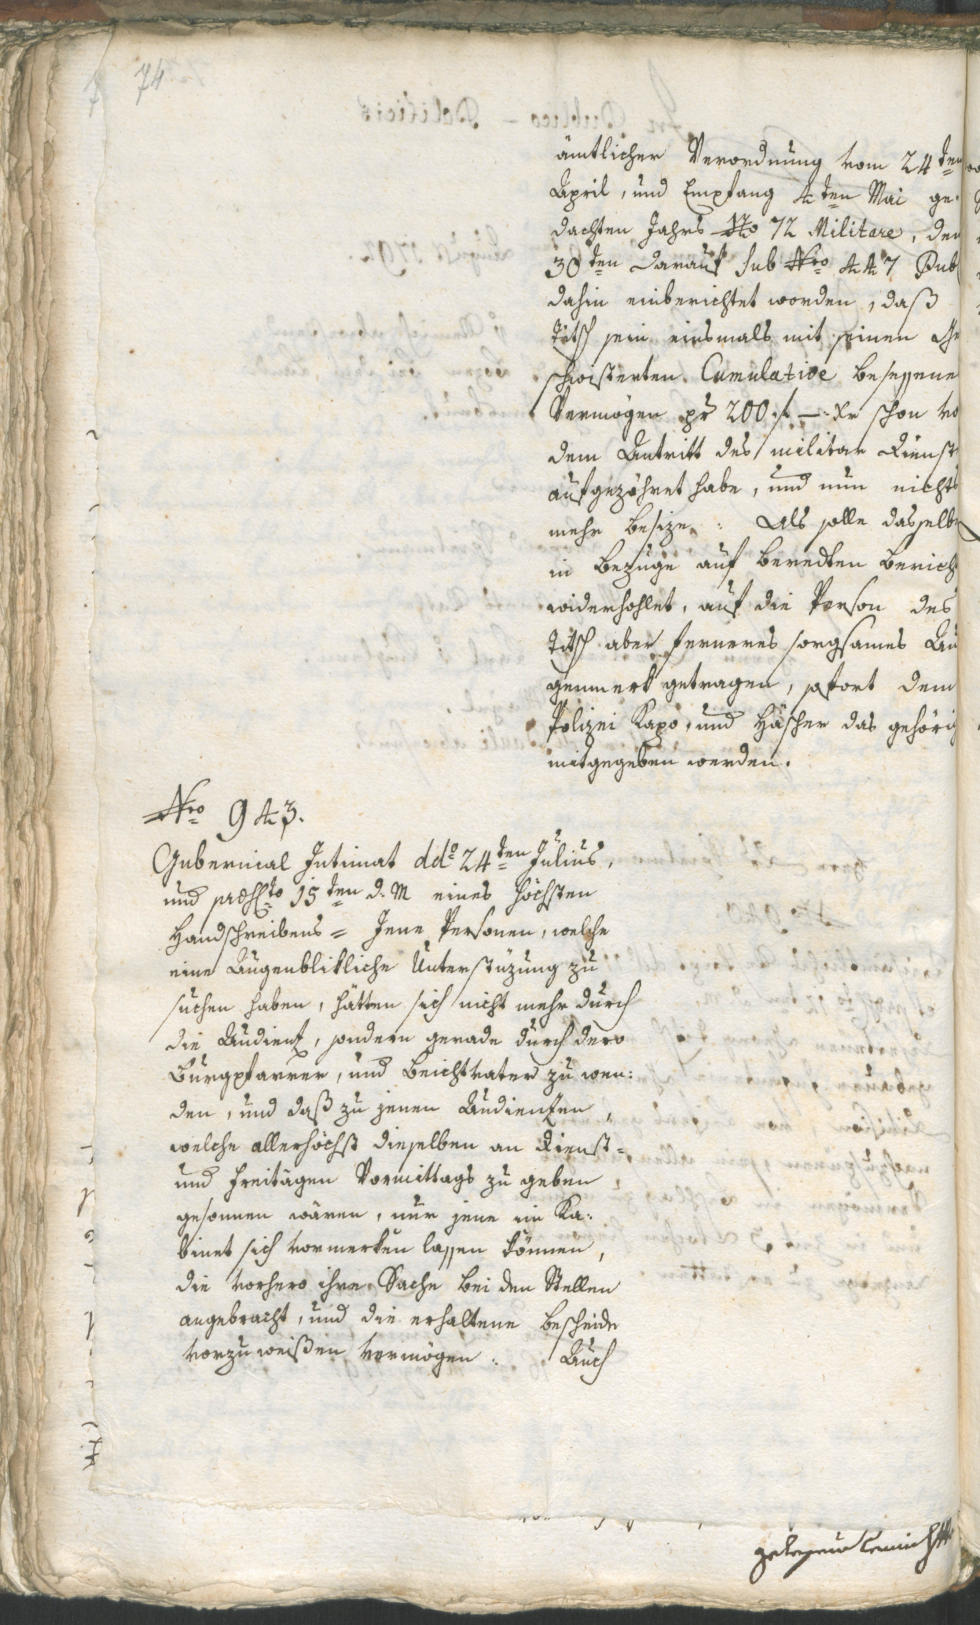 74
ämtlicher Verordnung vom 24ten
April, und Empfang 4ten Mai ge-
dachten Jahrs Nro 72 Militare, den
30ten darauf sub Nro 447 Pub
dahin einberichtet worden, daß
Titsch sein einsmals mit seinen Ge
schwisterten Cumulative besessene
Vermögen pr 200 f — Xr schon vo
dem Antritt des militar Dienst
aufgezöhret habe, und nun nichts
mehr besize. Als solle dasselbe
in Bezuge auf beredten Berich
widerhohlet, auf die Person des
Titsch aber ferneres sorgsames Au
genmerk getragen, sofort dem
Polizei Kapo, und Häscher das gehörig
mitgegeben werden.
Nro 943.
Gubernial Intimat ddo 24ten Julius,
und 15ten d. M eines höchsten
Handschreibens = Jene Personen, welche
eine Augenblikliche Unterstüzung zu
suchen haben, hätten sich nicht mehr durch
die Audienz, sondern gerade durch dero
Burgpfarrer, und Beichtvater zu wen:
den, und daß zu jenen Audienzen,
welche allerhöchst dieselben an Dienst-
und Freitägen Vormittags zu geben
gesonnen wären, nur jene im Ka:
binet sich vormerken lassen können,
die vorhero ihre Sache bei den Stellen
angebracht, und die erhaltene Bescheide
vorzuweißen vermögen. Auch